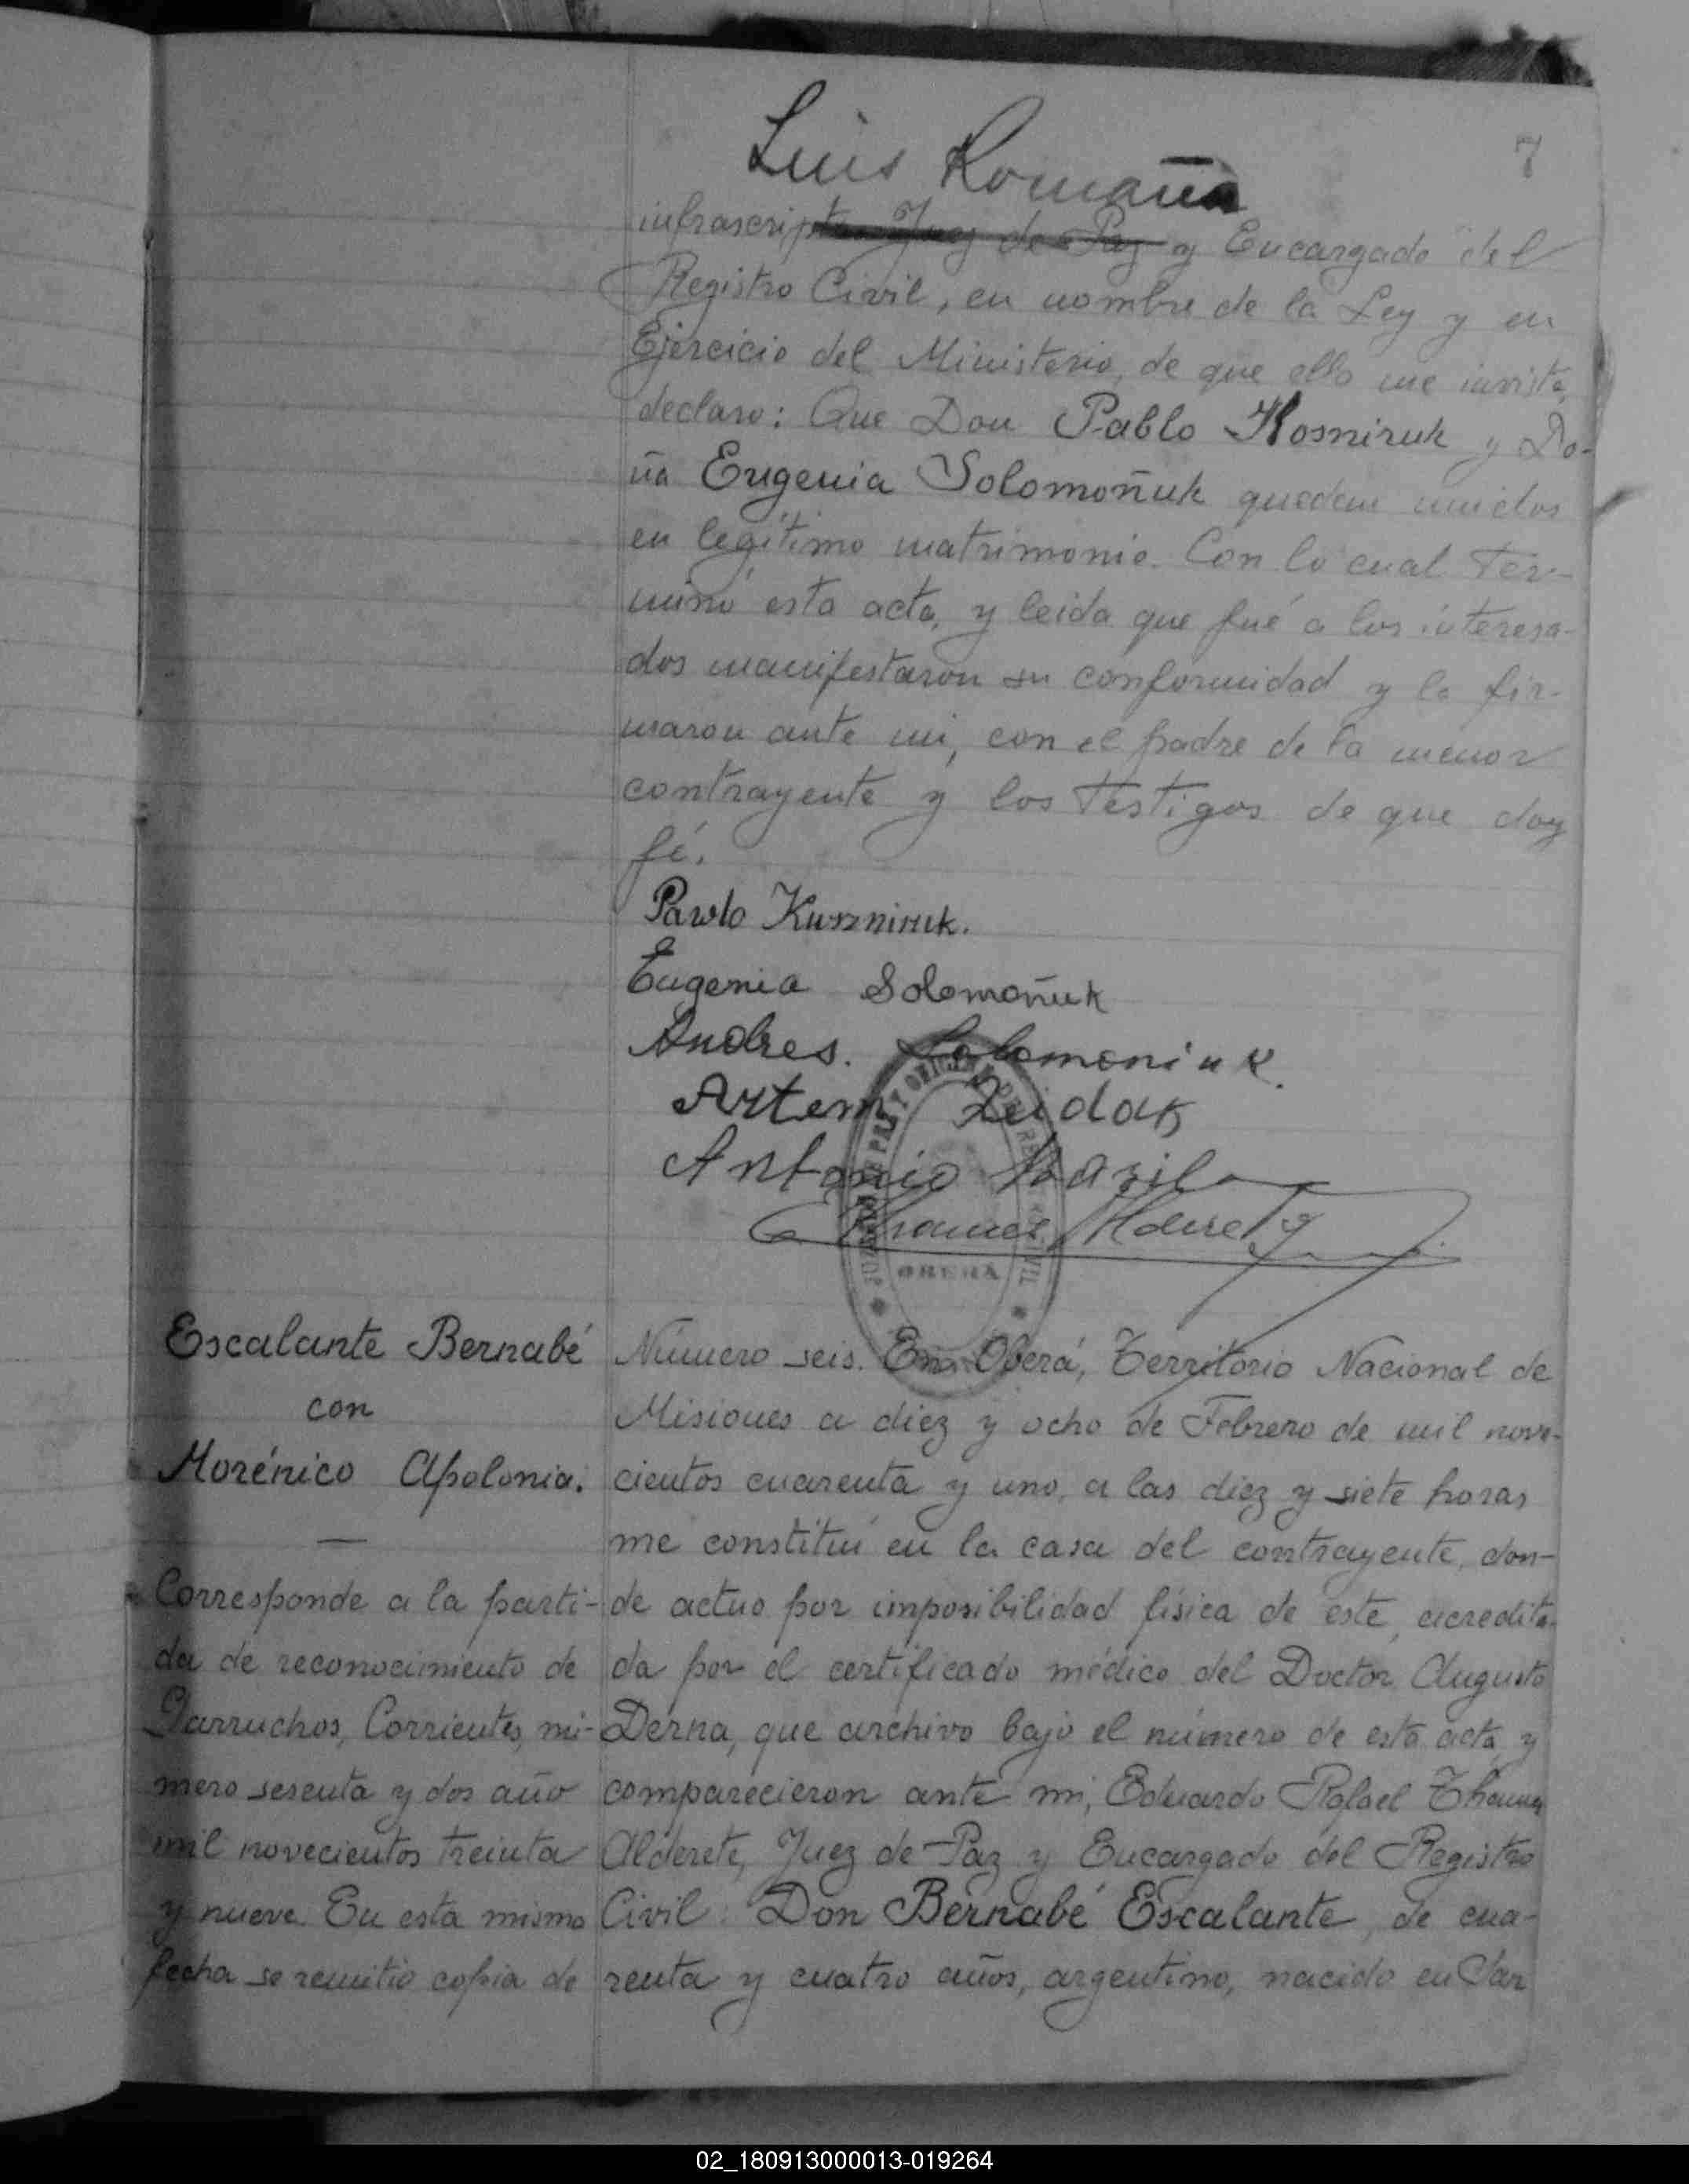 7
Luis Romaña
infrascripto Juez de Paz y Encargado del
Registro Civil, en nombre de la Ley y en
Ejercicio del Ministerio, de que ello me invista,
declaro: Que Don Pablo Kosniruk y Do-
ña Eugenia Solomoñuk quedan unidos
en legítimo matrimonio. Con lo cual ter-
minó esta acta, y leida que fué a los interesa-
dos manifestaron su conformidad y la fir-
maron ante mi, con el padre de la menor
contrayente y los testigos de que doy
fé.
Pawlo Kuszniruk.
Eugenia Solomoñuk
Andres. Solomoniuk.
Artem Zuidak
Antonio
JUZGADO DE PAZ Y OFICINA DE REGISTRO CIVIL
OBERÁ
Escalante Bernabé
con
Morénico Apolonia.
—
Corresponde a la parti-
da de reconocimiento de
Garruchos, Corrientes, nú-
mero sesenta y dos año
mil novecientos treinta
y nueve. En esta misma
fecha se remitió copia de
Número seis. En Oberá, Territorio Nacional de
Misiones a diez y ocho de Febrero de mil nove-
cientos cuarenta y uno, a las diez y siete horas
me constituí en la casa del contrayente, don-
de actuo por imposibilidad física de este, acredita-
da por el certificado médico del Doctor Augusto
Derna, que archivo bajo el número de esta acta y
comparecieron ante mi, Eduardo Rafael Thames
Alderete, Juez de Paz y Encargado del Registro
Civil: Don Bernabé Escalante, de cua-
renta y cuatro años, argentino, nacido en San
02_180913000013-019264